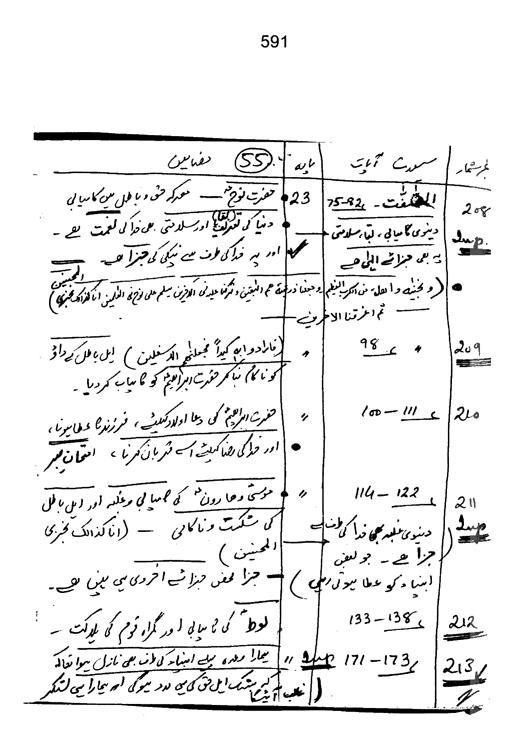 591
نمبر شمار سورت آیات پارہ 55 مضامین
208 الصّٰفّٰت - 75-82 23 حضرت نوحؑ — معرکہ حق و باطل میں کامیابی
Imp. دنیوی کامیابی، بقا، سلامتی دنیا کی اور سلامتی بھی خدا کی نعمت ہے -
یہ بھی جزائے الٰہی ہے اور یہ خدا کی طرف سے نیکی کی جزا ہے -
(ونجینٰہ و اھلہ من الکرب العظیم وجعلنا ذریتہ ھم البٰقین وترکنا علیہ فی الاٰخرین سلٰم علی نوح فی العٰلمین انا کذالک نجزی المحسنین)
ثم اغرقنا الاٰخرین
209 " 98 " (فارادوا بہ کیداً فجعلنٰھم الاسفلین) اہل باطل کے داؤ
کو ناکام بنا کر حضرت ابراہیمؑ کو کامیاب کر دیا -
210 100-111 " حضرت ابراہیمؑ کی دعا اولاد کیلئے، فرزند عطا ہونا،
اور خدا کی رضا کیلئے اسے قربان کرنا، امتحان صبر
211 114-122 " موسیٰؑ و ہارونؑ کی کامیابی و غلبہ اور اہل باطل
Imp دنیوی غلبہ بھی خدا کی طرف سے کی شکست و ناکامی — (انا کذالک نجزی
جزا ہے - جو بعض المحسنین)
انبیاء کو عطا ہوتی رہی) جزا محض جزائے اخروی ہی نہیں ہے -
212 133-138 لوطؑ کی کامیابی اور گمراہ قوم کی ہلاکت -
213 171-173 Imp " ہمارا وعدہ پہلے انبیاء کی طرف بھی نازل ہوا تھا کہ
بیشک اہل حق کی ہی مدد ہوگی اور ہمارا ہی لشکر
غالب آئیگا)